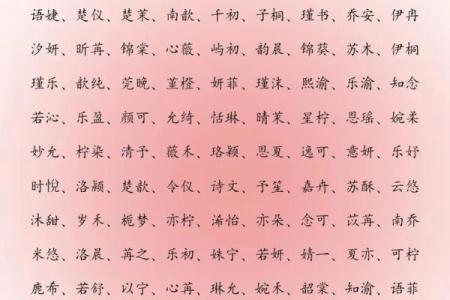 语婕、楚仪、楚茉、南歆、千初、子桐、瑾书、乔安、伊冉
汐妍、昕苒、锦棠、心薇、屿初、韵晨、锦葵、苏木、伊桐
瑾乐、歆纯、莞晚、堇橙、妍菲、瑾沫、熙渝、乐渝、知念
若沁、乐盈、颜可、允绮、恬琳、晴茉、星柠、思瑶、婉柔
妙允、柠染、清予、薇禾、珞颖、思夏、逸可、意妍、乐妤
时悦、洛颖、楚歆、令仪、诗文、予笙、嘉卉、苏酥、云悠
沐甜、岁禾、栀梦、亦柠、浠怡、亦朵、念可、苡苒、南乔
米悠、洛晨、苒之、乐初、姝宁、若妍、婧一、夏亦、可柠
鹿希、若舒、以宁、心苒、琳允、婉禾、韶棠、知渝、语菲